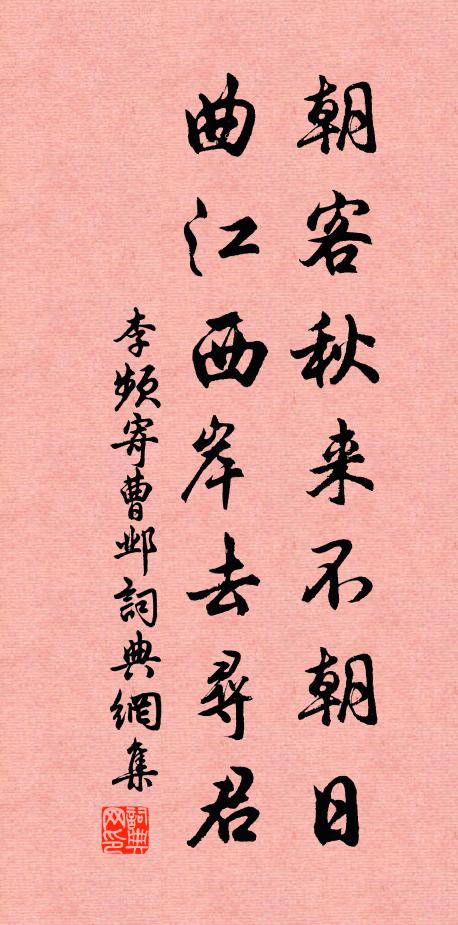 朝客秋来不朝日
曲江西岸去尋君
李頻寄曹邺詞典網集
詞典网印